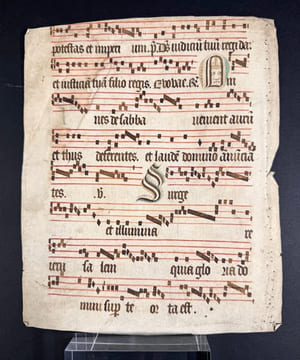 potestas et imperi um. p̄s. Iudicium tuū regi da.
et iusticiā tuā filio regis. Evovae. R. Om
nes de sabba uenient aurū
et thus deferentes. et laudē domino anūcia
tes. .v. Surge
et illumina re
ieru sa lem quia glo ria do
mini sup te or ta est.